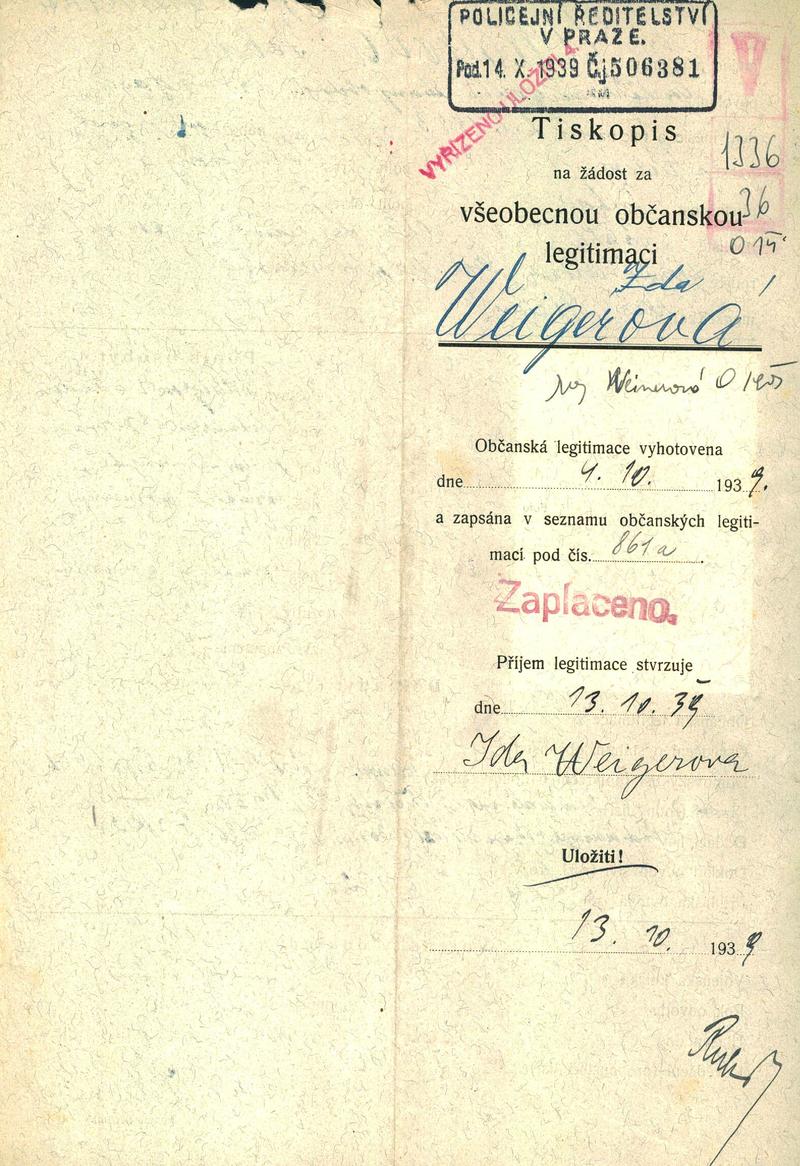 POLICEJNÍ ŘEDITELSTVÍ
V PRAZE.
Pod. 14. X. 1939 Čj 506381
VYŘÍZENO ULOŽIT
Tiskopis
1336
na žádost za
36
všeobecnou občanskou
legitimaci
Ida
Weigerová
Weinerová
Občanská legitimace vyhotovena
dne 4. 10. 1939.
a zapsána v seznamu občanských legiti-
mací pod čís. 861a.
Zaplaceno.
Příjem legitimace stvrzuje
dne 13. 10. 39
Ida Weigerova
Uložiti!
13. 10. 1939